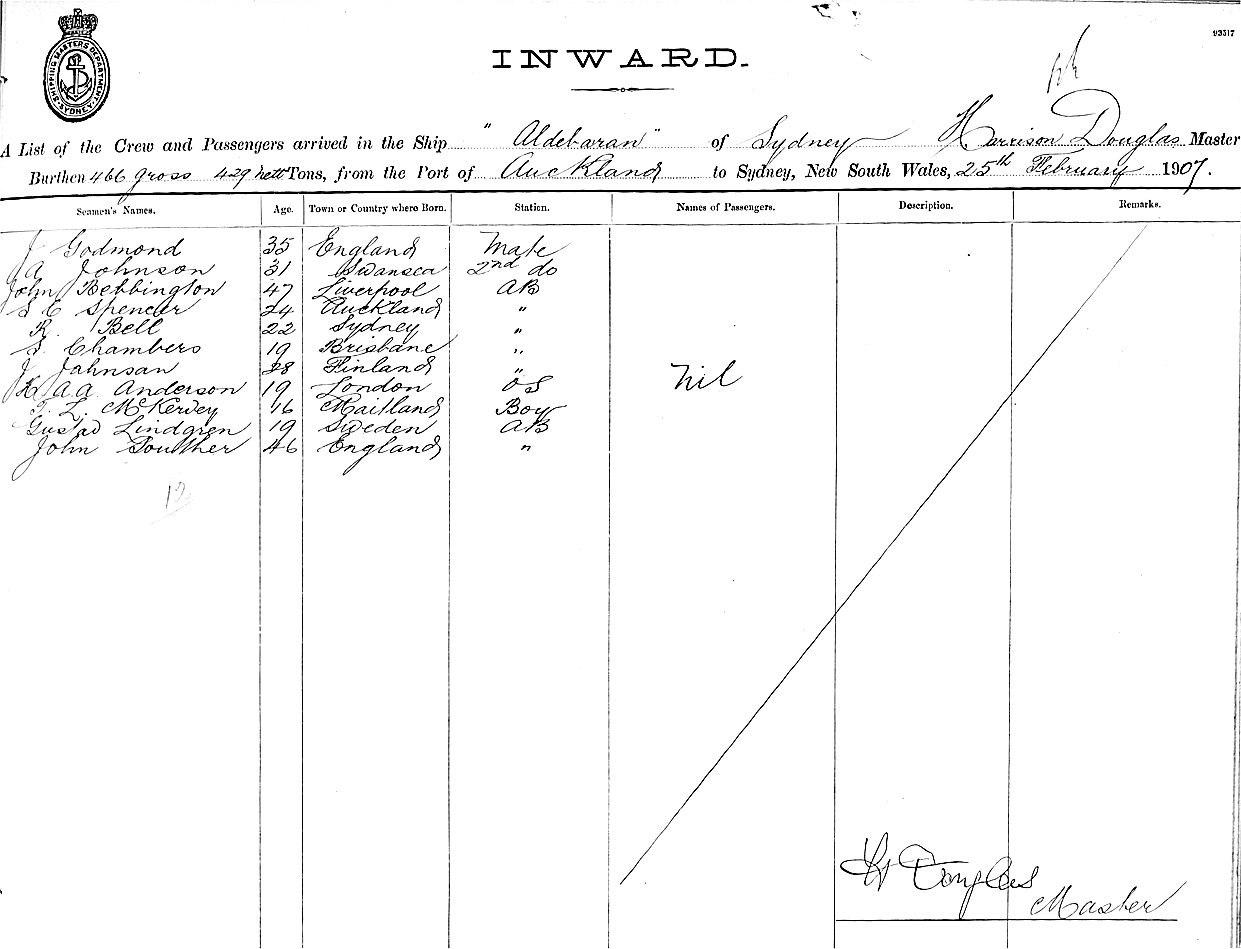 93317
SHIPPING MASTERS DEPARTMENT SYDNEY
INWARD.
A List of the Crew and Passengers arrived in the Ship "Aldebaran" of Sydney Harrison Douglas Master
Burthen 466 gross 429 nett Tons, from the Port of Auckland to Sydney, New South Wales, 25th February 1907.
Seamen's Names. Age. Town or Country where Born. Station. Names of Passengers. Description. Remarks.
J Godmond 35 England Mate
A Johnson 31 Swansea 2nd do
John Bebbington 47 Liverpool AB
S E Spencer 24 Auckland "
R. Bell 22 Sydney "
S. Chambers 19 Brisbane "
J Jahnsan 28 Finland "
H A.A. Anderson 19 London OS Nil
T. L. McKervey 16 Maitland Boy
Gustad Lindgren 19 Sweden AB
John Souther 46 England "
12
H Douglas
Master